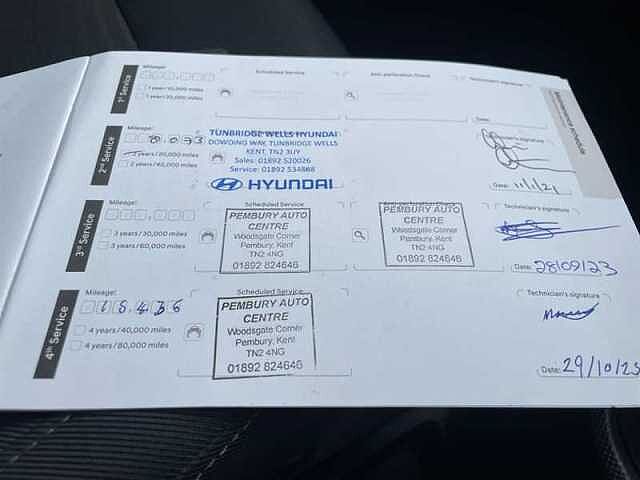 Mileage:
Scheduled Service
Anti-perforation Check
Technician's signature
1st Service
1 year/10,000 miles
1 year/20,000 miles
Date:
Maintenance schedule
2nd Service
Mileage:
8,033
2 years/20,000 miles
2 years/40,000 miles
TUNBRIDGE WELLS HYUNDAI
DOWDING WAY, TUNBRIDGE WELLS
KENT, TN2 3UY
Sales: 01892 520026
Service: 01892 534868
HYUNDAI
Technician's signature
Date: 11/1/21
3rd Service
Mileage:
3 years/30,000 miles
3 years/60,000 miles
Scheduled Service
PEMBURY AUTO
CENTRE
Woodsgate Corner
Pembury, Kent
TN2 4NG
01892 824646
PEMBURY AUTO
CENTRE
Woodsgate Corner
Pembury, Kent
TN2 4NG
01892 824646
Technician's signature
Date: 28/09/23
4th Service
Mileage:
15,436
4 years/40,000 miles
4 years/80,000 miles
Scheduled Service
PEMBURY AUTO
CENTRE
Woodsgate Corner
Pembury, Kent
TN2 4NG
01892 824646
Technician's signature
Date: 29/10/23